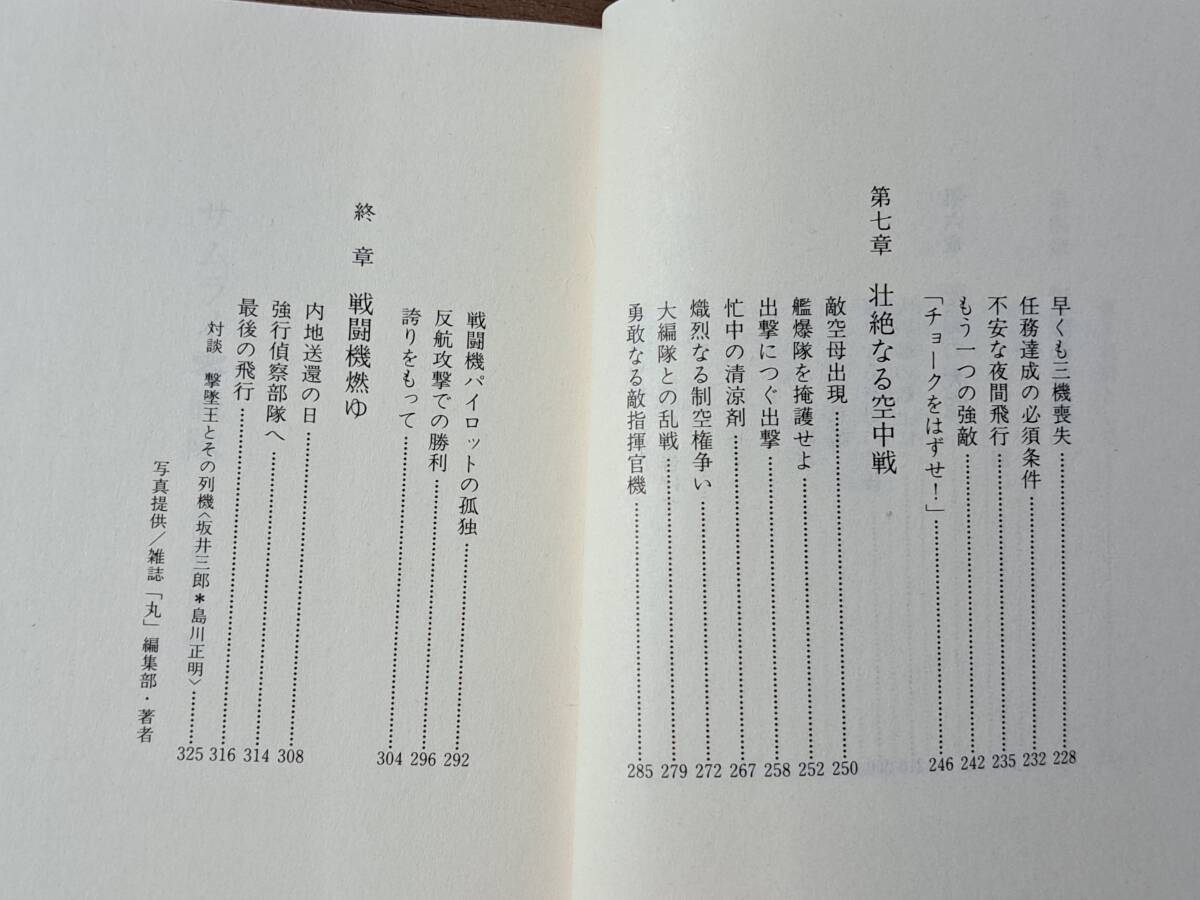 早くも三機喪失……228
任務達成の必須条件……232
不安な夜間飛行……235
もう一つの強敵……242
「チョークをはずせ！」……246
第七章　壮絶なる空中戦
敵空母出現……250
艦爆隊を掩護せよ……252
出撃につぐ出撃……258
忙中の清涼剤……267
熾烈なる制空権争い……272
大編隊との乱戦……279
勇敢なる敵指揮官機……285
戦闘機パイロットの孤独……292
反航攻撃での勝利……296
誇りをもって……304
終　章　戦闘機燃ゆ
内地送還の日……308
強行偵察部隊へ……314
最後の飛行……316
対談　撃墜王とその列機〈坂井三郎＊島川正明〉……325
写真提供／雑誌「丸」編集部・著者